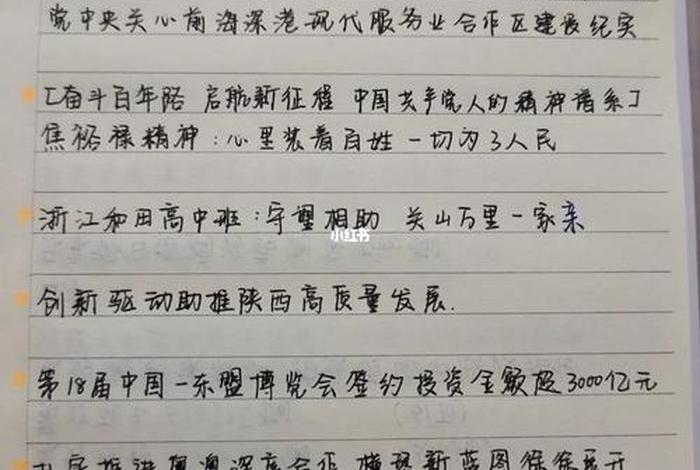 党中央关心前海深港现代服务业合作区建设纪实
[奋斗百年路 启航新征程 中国共产党人的精神谱系]
焦裕禄精神：心里装着百姓 一切为了人民
浙江和田高中班：守望相助 关山万里一家亲
小红书
创新驱动助推陕西高质量发展.
第18届中国－东盟博览会签约投资金额超3000亿元
推进粤澳深度合作 横琴新蓝图徐徐展开